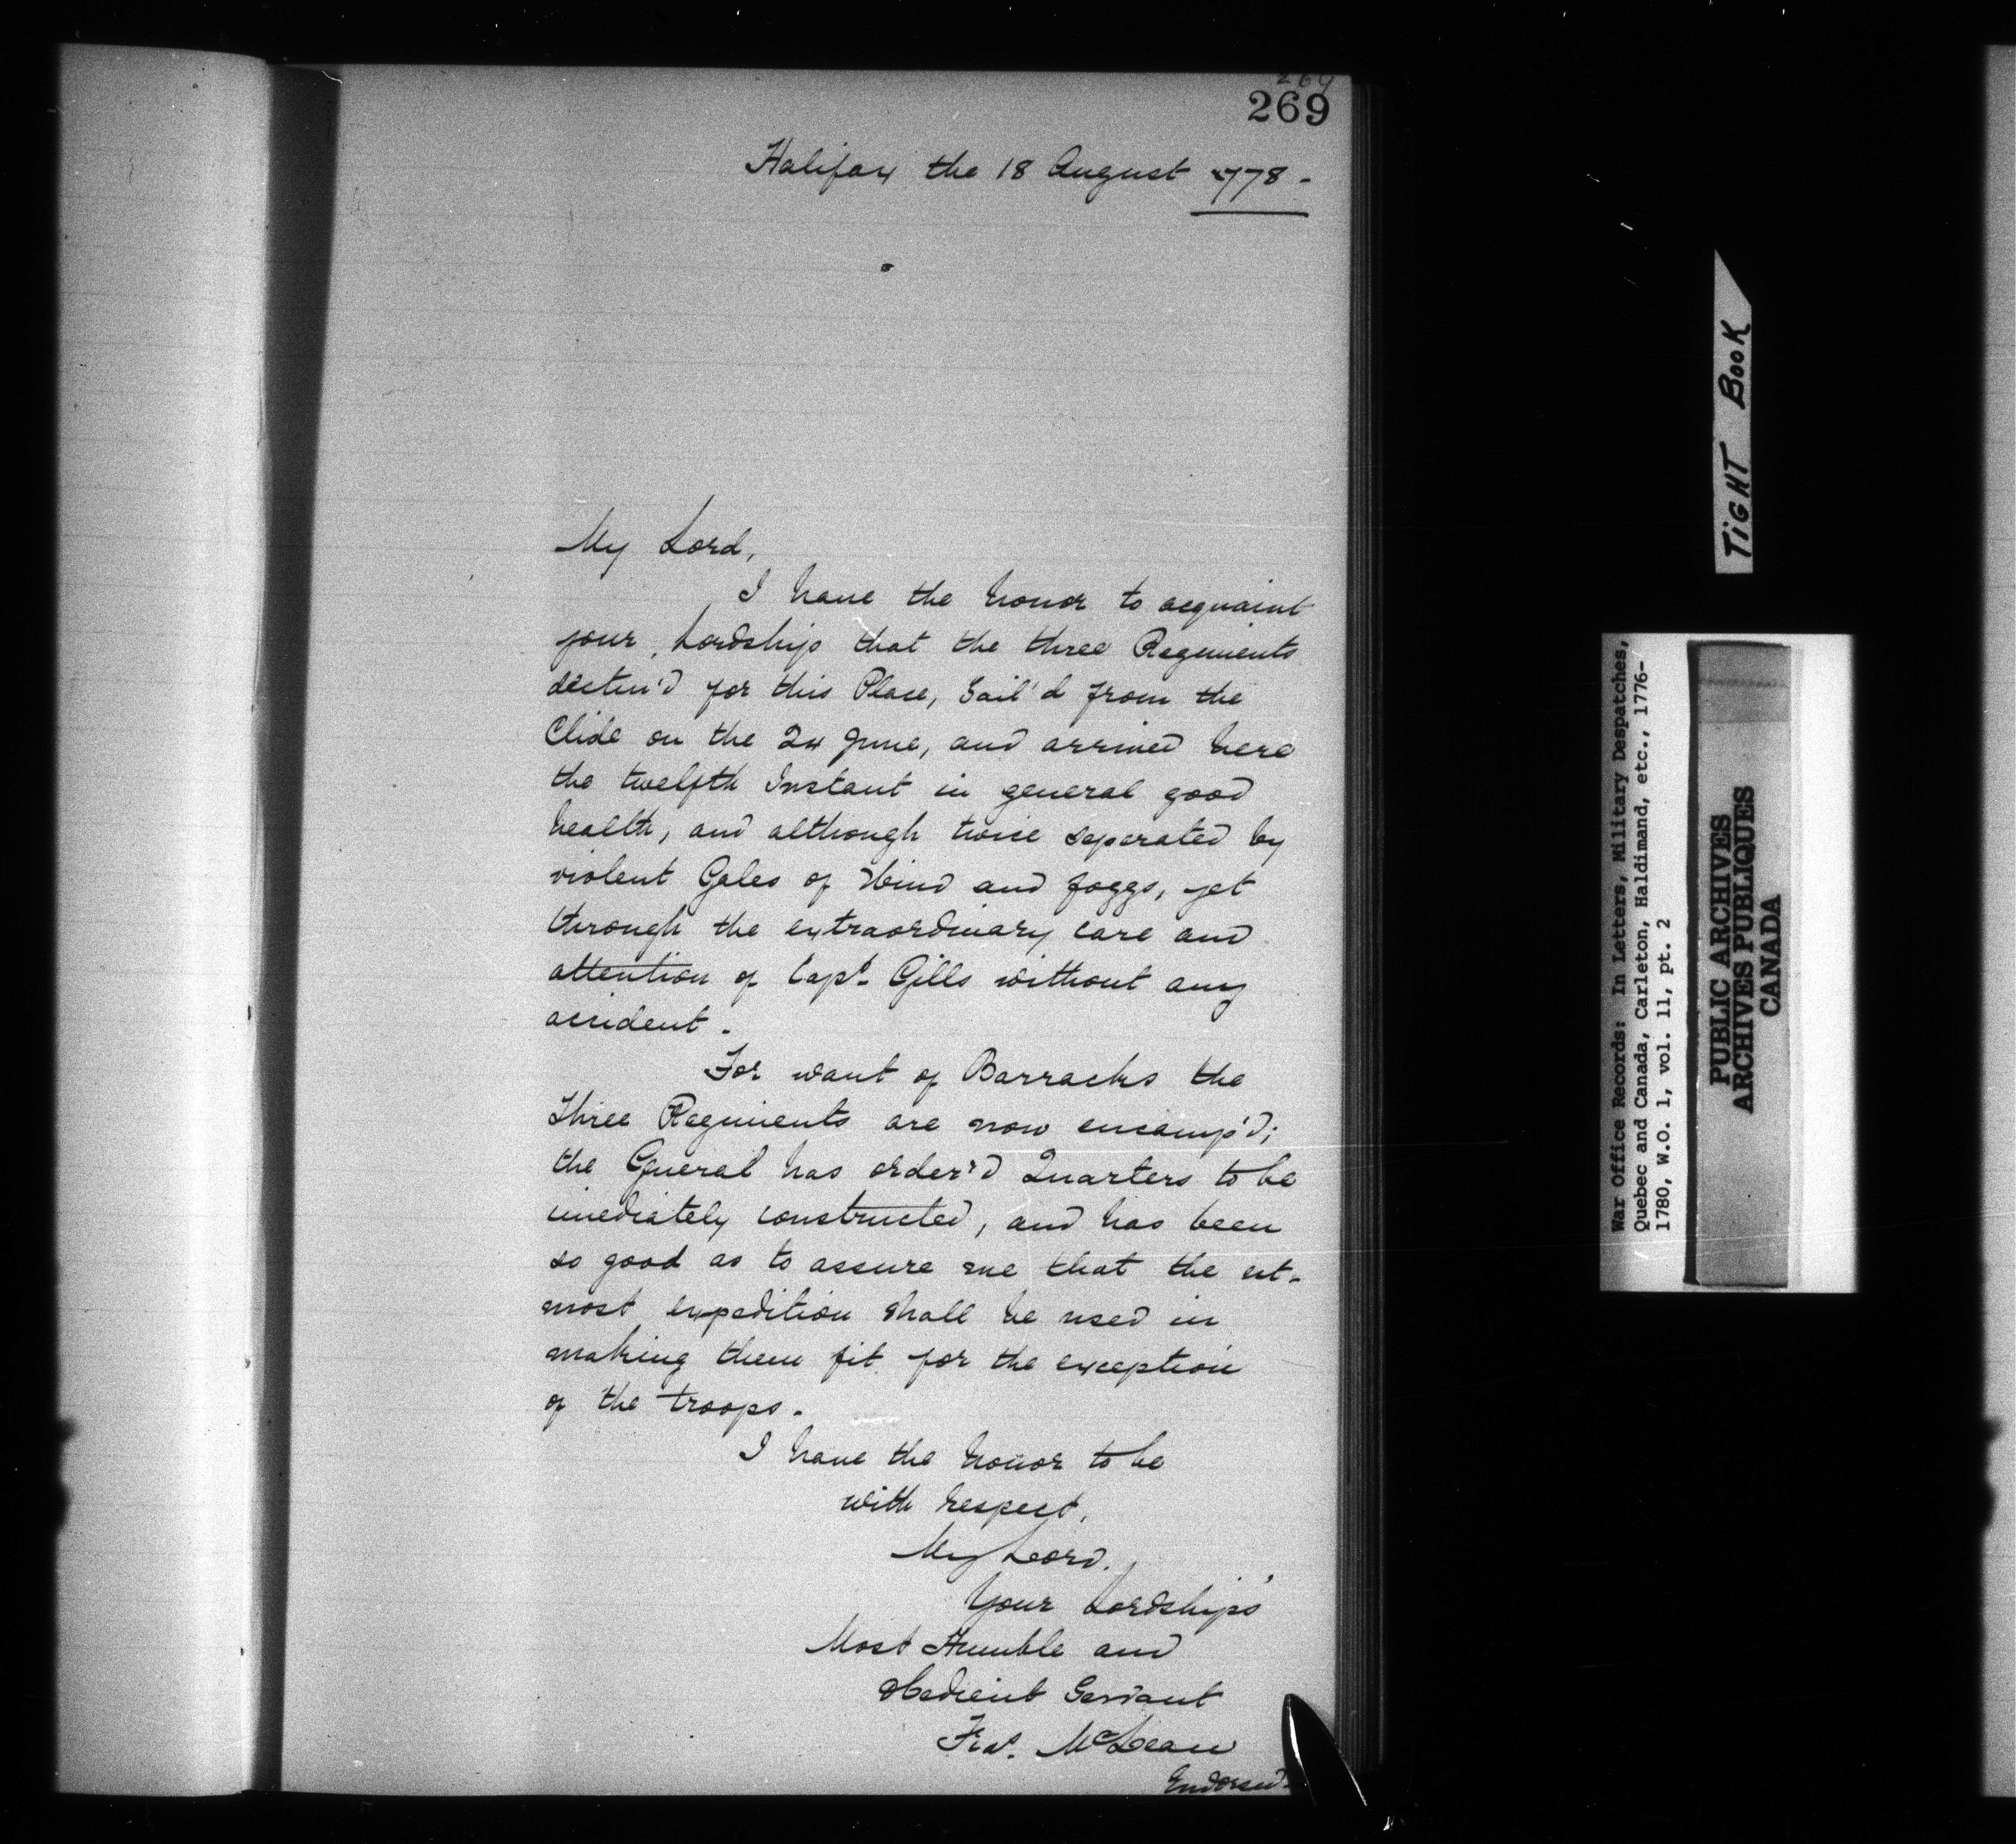 269
269
Halifax the 18 August 1778 -
My Lord,
I have the honor to acquaint
your Lordship that the three Regiments
destin'd for this Place, Sail'd from the
Clide on the 24 June, and arrived here
the twelfth Instant in general good
health, and although twice seperated by
violent Gales of Wind and foggs, yet
through the extraordinary care and
attention of Capt. Gills without any
accident.
For want of Barracks the
three Regiments are now encamp'd;
the General has order'd Quarters to be
imediately constructed, and has been
so good as to assure me that the ut-
most expedition shall be used in
making them fit for the exception
of the troops.
I have the honor to be
with respect,
My Lord,
Your Lordships'
Most Humble and
obedient Servant
Fras. McLean
Endorsed.
TiGHT BooK
War Office Records: In Letters, Military Despatches,
Quebec and Canada, Carleton, Haldimand, etc., 1776-
1780, W.O. 1, vol. 11, pt. 2
PUBLIC ARCHIVES
ARCHIVES PUBLIQUES
CANADA